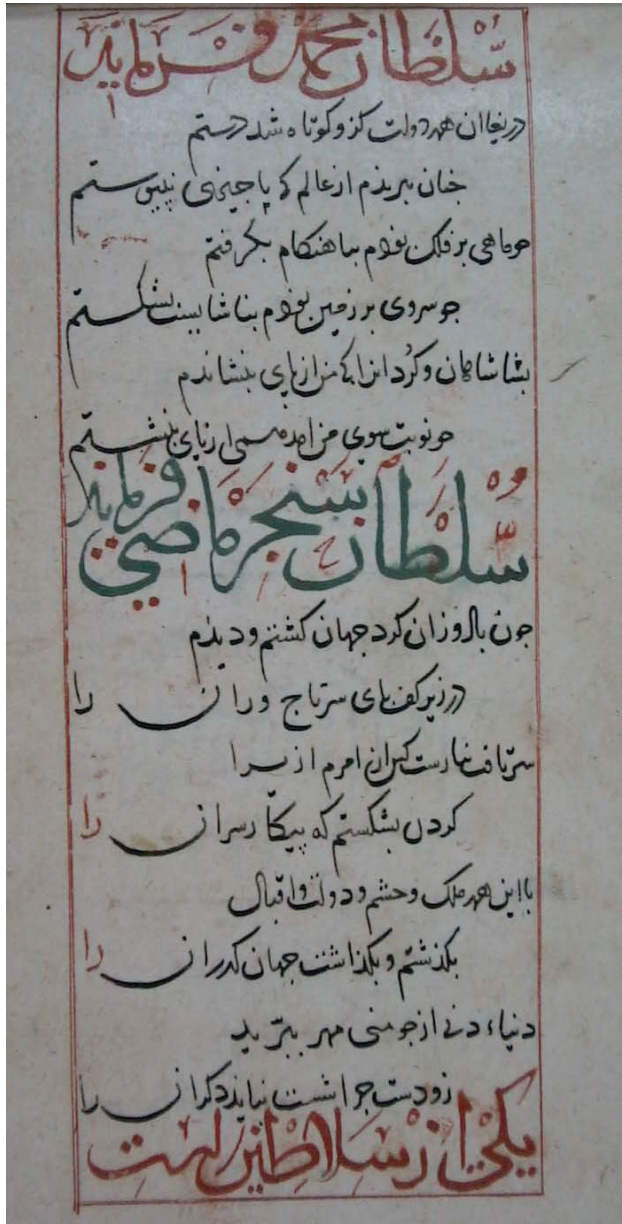 سلطان محمد فرماید
دریغا ان همه دولت کزو کوتاه شد دستم
جنان ببریذم از عالم که با جیزی نپیوستم
جو ماهی بر فلک بوذم بناهنکام بکرفتم
جو سروی بر زمین بوذم بناشایست بشکستم
بشا شاهان و کردانرا که من از پای بنشاندم
جو نوبت سوی من امد هم از پای بنشستم
سلطان سنجر ماضی فرماید
جون باد وزان کرد جهان کشتم و دیذم
در زیر کف پای سر تاجوران را
سر تافت از امرم از یرا
کردن بشکستم که بیکا سران را
با این همه ملک و حشم و دولت و اقبال
بکذشتم و بکذاشت جهان کذران را
دنیاء دنی از جو منی مهر ببرید
زو دست جرا شست نیایذ دکران را
یکی از سلاطین راست